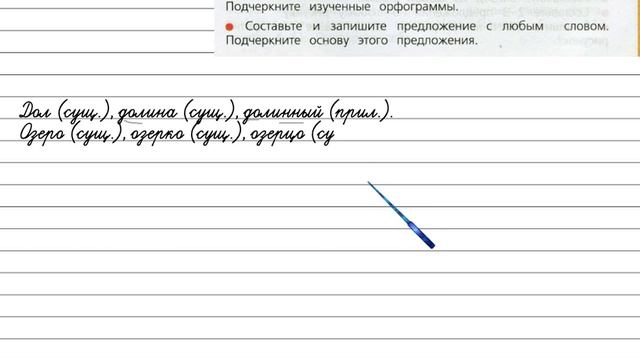 Подчеркните изученные орфограммы.
● Составьте и запишите предложение с любым словом.
Подчеркните основу этого предложения.
Дол (сущ.), долина (сущ.), долинный (прил.).
Озеро (сущ.), озерко (сущ.), озерцо (су